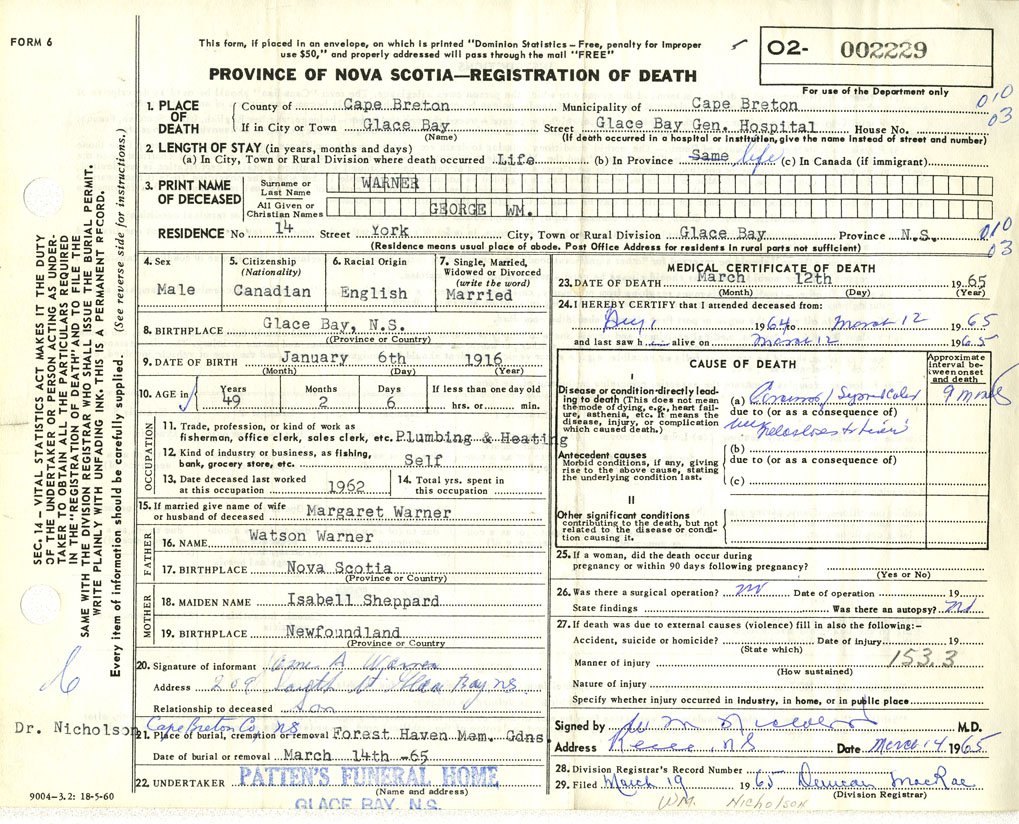 FORM 6
This form, if placed in an envelope, on which is printed "Dominion Statistics – Free, penalty for improper
use $50," and properly addressed will pass through the mail "FREE"
O2- 002229
For use of the Department only
PROVINCE OF NOVA SCOTIA—REGISTRATION OF DEATH
010
03
1. PLACE OF DEATH
County of Cape Breton Municipality of Cape Breton
If in City or Town Glace Bay Street Glace Bay Gen. Hospital House No.
(Name) (If death occurred in a hospital or institution, give the name instead of street and number)
2. LENGTH OF STAY (in years, months and days)
(a) In City, Town or Rural Division where death occurred Life (b) In Province Same life (c) In Canada (if immigrant)
3. PRINT NAME OF DECEASED
Surname or Last Name WARNER
All Given or Christian Names GEORGE WM.
RESIDENCE No 14 Street York City, Town or Rural Division Glace Bay Province N.S.
(Residence means usual place of abode. Post Office Address for residents in rural parts not sufficient)
010
03
4. Sex Male
5. Citizenship (Nationality) Canadian
6. Racial Origin English
7. Single, Married, Widowed or Divorced (write the word) Married
8. BIRTHPLACE Glace Bay, N.S.
(Province or Country)
9. DATE OF BIRTH January 6th 1916
(Month) (Day) (Year)
10. AGE in Years 49 Months 2 Days 6 If less than one day old hrs. or min.
OCCUPATION
11. Trade, profession, or kind of work as
fisherman, office clerk, sales clerk, etc. Plumbing & Heating
12. Kind of industry or business, as fishing,
bank, grocery store, etc. Self
13. Date deceased last worked at this occupation 1962
14. Total yrs. spent in this occupation
15. If married give name of wife
or husband of deceased Margaret Warner
FATHER
16. NAME Watson Warner
17. BIRTHPLACE Nova Scotia
(Province or Country)
MOTHER
18. MAIDEN NAME Isabell Sheppard
19. BIRTHPLACE Newfoundland
(Province or Country)
20. Signature of informant Warner
Address 209 St Glace Bay NS.
Relationship to deceased Son
Cape Breton Co, NS
Dr. Nicholson
21. Place of burial, cremation or removal Forest Haven Mem. Gdns.
Date of burial or removal March 14th -65
22. UNDERTAKER PATTEN'S FUNERAL HOME
(Name and address)
GLACE BAY, N.S.
9004–3.2: 18-5-60
MEDICAL CERTIFICATE OF DEATH
23. DATE OF DEATH March 12th 1965
(Month) (Day) (Year)
24. I HEREBY CERTIFY that I attended deceased from:
1964 to March 12 1965
and last saw h alive on March 12 1965
CAUSE OF DEATH
Approximate interval between onset and death
I
Disease or condition directly leading to death (This does not mean the mode of dying, e.g., heart failure, asthenia, etc. It means the disease, injury, or complication which caused death.)
(a) 9 months
due to (or as a consequence of)
Antecedent causes
Morbid conditions, if any, giving rise to the above cause, stating the underlying condition last.
(b)
due to (or as a consequence of)
(c)
II
Other significant conditions
contributing to the death, but not related to the disease or condition causing it.
25. If a woman, did the death occur during
pregnancy or within 90 days following pregnancy?
(Yes or No)
26. Was there a surgical operation? no Date of operation 19
State findings Was there an autopsy? no
27. If death was due to external causes (violence) fill in also the following:–
Accident, suicide or homicide? Date of injury 19
(State which)
153.3
Manner of injury
(How sustained)
Nature of injury
Specify whether injury occurred in industry, in home, or in public place
Signed by M Nicholson M.D.
Address NS Date March 14 1965
28. Division Registrar's Record Number
29. Filed March 19 1965 Duncan MacRae
(Division Registrar)
WM. NICHOLSON
SEC. 14 – VITAL STATISTICS ACT MAKES IT THE DUTY
OF THE UNDERTAKER OR PERSON ACTING AS UNDER-
TAKER TO OBTAIN ALL THE PARTICULARS REQUIRED
IN THE "REGISTRATION OF DEATH" AND TO FILE THE
SAME WITH THE DIVISION REGISTRAR WHO SHALL ISSUE THE BURIAL PERMIT.
WRITE PLAINLY WITH UNFADING INK. THIS IS A PERMANENT RECORD.
Every item of information should be carefully supplied. (See reverse side for instructions.)